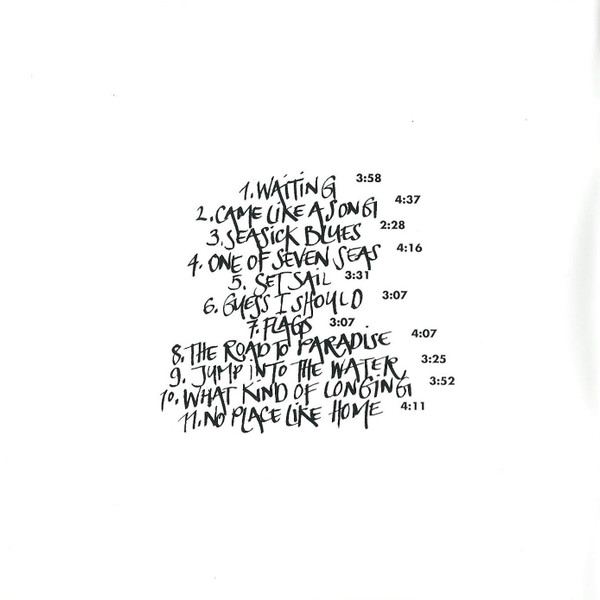 1. WAITING 3:58
2. CAME LIKE A SONG 4:37
3. SEASICK BLUES 2:28
4. ONE OF SEVEN SEAS 4:16
5. SET SAIL 3:31
6. GUESS I SHOULD 3:07
7. FLAGS 3:07
8. THE ROAD TO PARADISE 4:07
9. JUMP INTO THE WATER 3:25
10. WHAT KIND OF LONGING 3:52
11. NO PLACE LIKE HOME 4:11